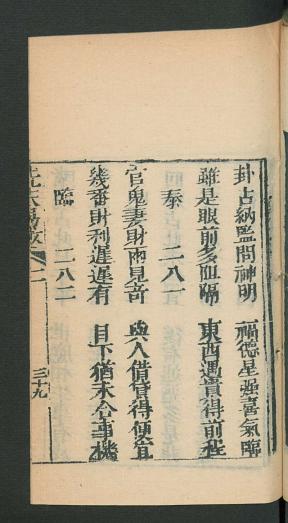 卦占納監問神明　福德星强喜氣臨
雖是眼前多阻隔　東西遇貴得前程
泰　二八一
官鬼妻財兩見奇　與人借貸得便宜
幾番財利遲遲有　目下猶未合事機
臨　二八二
先天易數　二　三十九